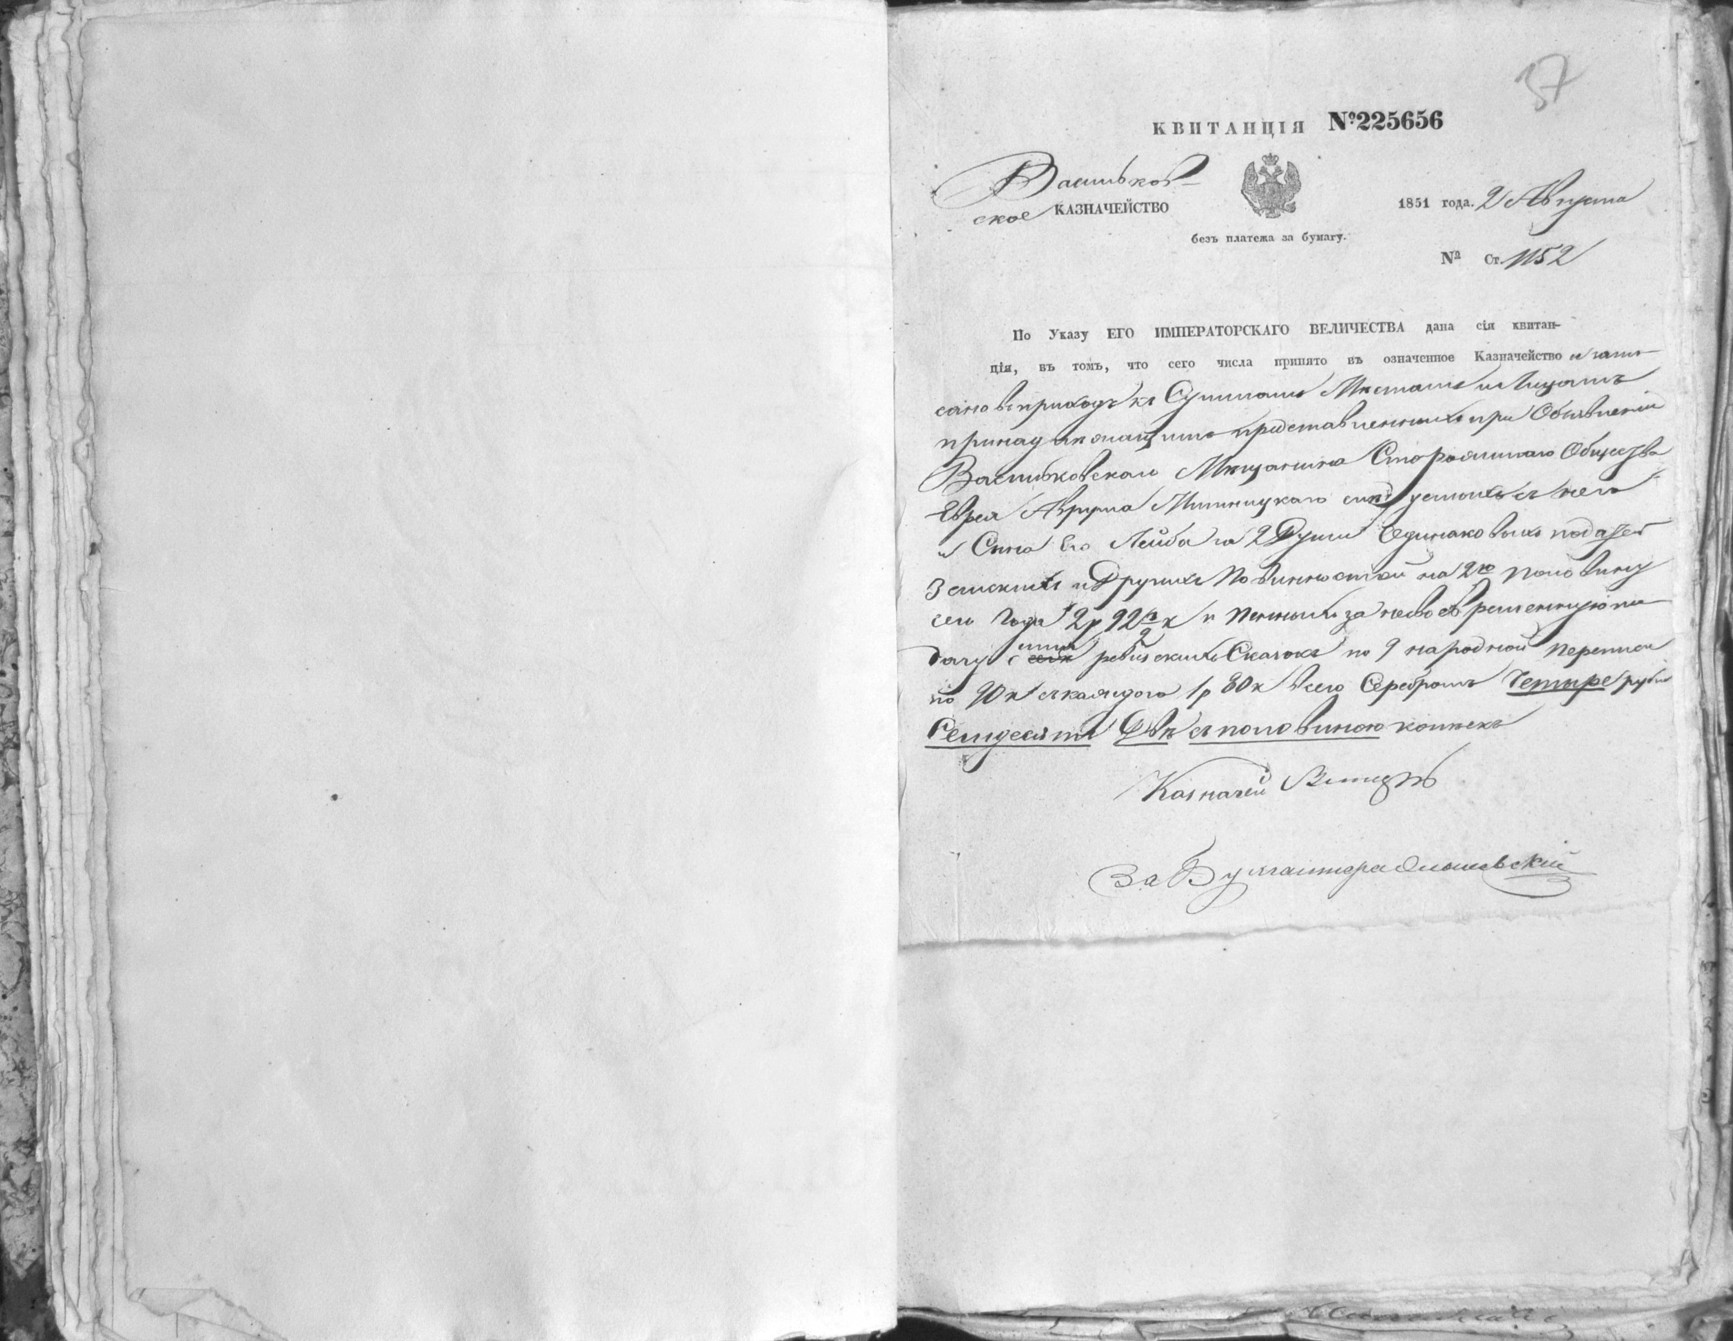 37
КВИТАНЦІЯ №225656
Васильков-
ское КАЗНАЧЕЙСТВО
1851 года. 2 Августа
безъ платежа за бумагу.
№ Ст. 1152
По Указу ЕГО ИМПЕРАТОРСКАГО ВЕЛИЧЕСТВА дана сія квитан-
ція, въ томъ, что сего числа принято въ означенное Казначейство и запи-
сано въ приходъ къ Суммамъ Мѣстамъ и Лицамъ
принадлежащимъ представленныхъ при Объявленіи
Васильковскаго Мѣщанина Общества
Еврея Аврума съ него
и Сына Его Лейба за 2 Души Единаковыхъ податей
Земскихъ и Другихъ Повинностей на 2ю половину
сего Года 2р 92½ к и пенныхъ за несвоевременную по
дачу ревизскихъ Сказокъ по 9 народной переписи
по 90 к съ каждого 1р 80 к всего Серебромъ Четыре руб
Семдесятъ Двѣ съ половиною копѣекъ
Казначей
За Бухгалтера